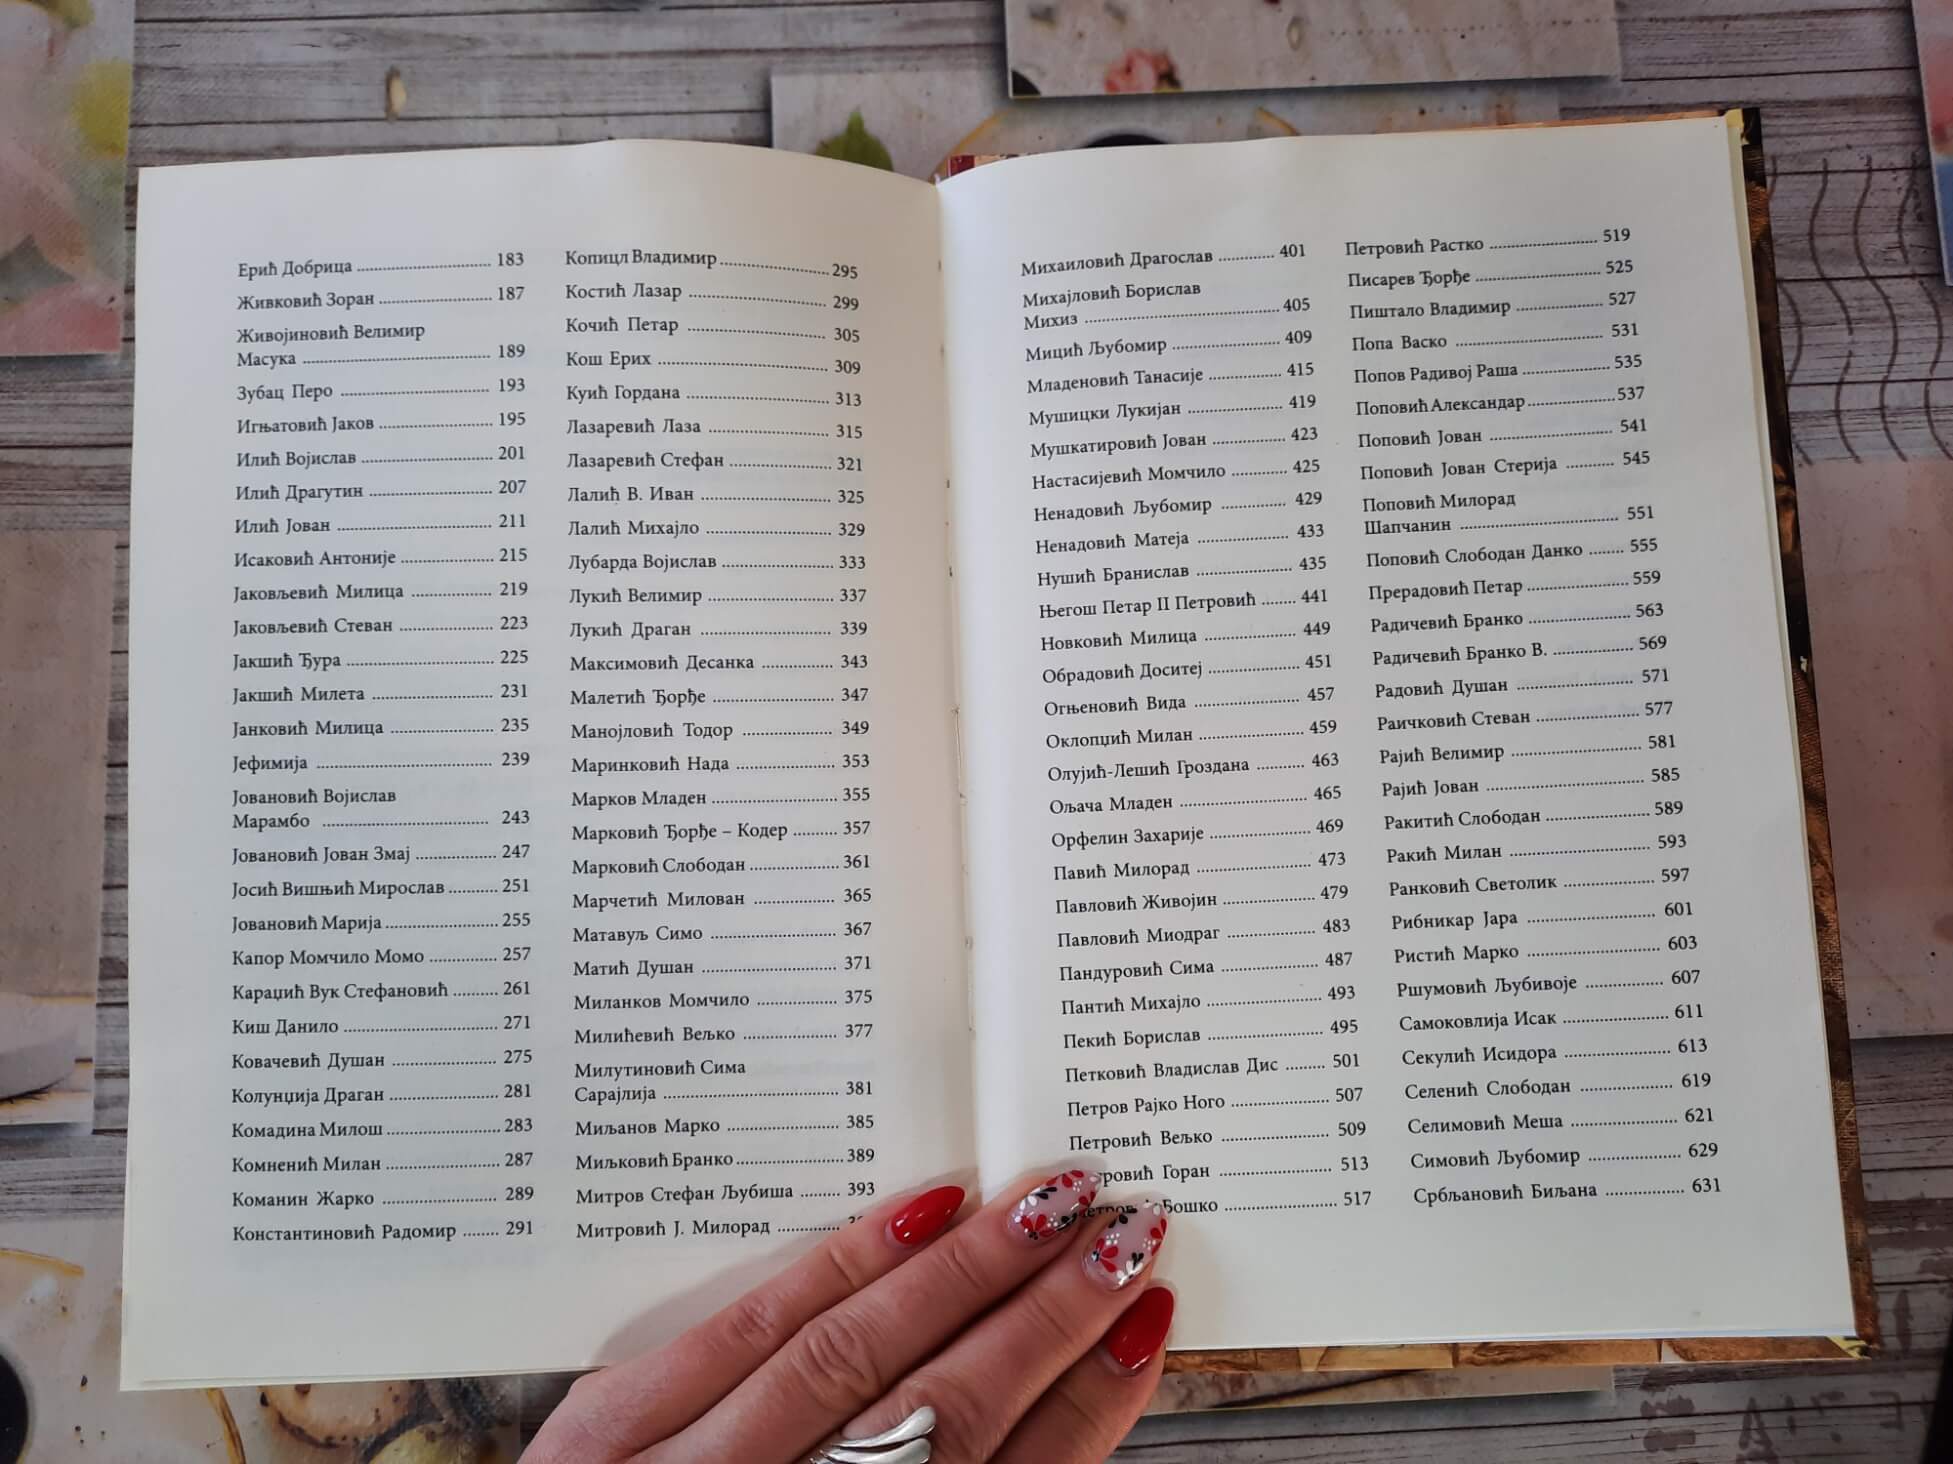 Ерић Добрица ........ 183
Живковић Зоран ........ 187
Живојиновић Велимир
Масука ........ 189
Зубац Перо ........ 193
Игњатовић Јаков ........ 195
Илић Војислав ........ 201
Илић Драгутин ........ 207
Илић Јован ........ 211
Исаковић Антоније ........ 215
Јаковљевић Милица ........ 219
Јаковљевић Стеван ........ 223
Јакшић Ђура ........ 225
Јакшић Милета ........ 231
Јанковић Милица ........ 235
Јефимија ........ 239
Јовановић Војислав
Марамбо ........ 243
Јовановић Јован Змај ........ 247
Јосић Вишњић Мирослав ........ 251
Јовановић Марија ........ 255
Капор Момчило Момо ........ 257
Караџић Вук Стефановић ........ 261
Киш Данило ........ 271
Ковачевић Душан ........ 275
Колунџија Драган ........ 281
Комадина Милош ........ 283
Комненић Милан ........ 287
Команин Жарко ........ 289
Константиновић Радомир ........ 291
Копицл Владимир ........ 295
Костић Лазар ........ 299
Кочић Петар ........ 305
Кош Ерих ........ 309
Куић Гордана ........ 313
Лазаревић Лаза ........ 315
Лазаревић Стефан ........ 321
Лалић В. Иван ........ 325
Лалић Михајло ........ 329
Лубарда Војислав ........ 333
Лукић Велимир ........ 337
Лукић Драган ........ 339
Максимовић Десанка ........ 343
Малетић Ђорђе ........ 347
Манојловић Тодор ........ 349
Маринковић Нада ........ 353
Марков Младен ........ 355
Марковић Ђорђе – Кодер ........ 357
Марковић Слободан ........ 361
Марчетић Милован ........ 365
Матавуљ Симо ........ 367
Матић Душан ........ 371
Миланков Момчило ........ 375
Милићевић Вељко ........ 377
Милутиновић Сима
Сарајлија ........ 381
Миљанов Марко ........ 385
Миљковић Бранко ........ 389
Митров Стефан Љубиша ........ 393
Митровић Ј. Милорад ........
Михаиловић Драгослав ........ 401
Михајловић Борислав
Михиз ........ 405
Мицић Љубомир ........ 409
Младеновић Танасије ........ 415
Мушицки Лукијан ........ 419
Мушкатировић Јован ........ 423
Настасијевић Момчило ........ 425
Ненадовић Љубомир ........ 429
Ненадовић Матеја ........ 433
Нушић Бранислав ........ 435
Његош Петар II Петровић ........ 441
Новковић Милица ........ 449
Обрадовић Доситеј ........ 451
Огњеновић Вида ........ 457
Оклопџић Милан ........ 459
Олујић-Лешић Гроздана ........ 463
Ољача Младен ........ 465
Орфелин Захарије ........ 469
Павић Милорад ........ 473
Павловић Живојин ........ 479
Павловић Миодраг ........ 483
Пандуровић Сима ........ 487
Пантић Михајло ........ 493
Пекић Борислав ........ 495
Петковић Владислав Дис ........ 501
Петров Рајко Ного ........ 507
Петровић Вељко ........ 509
Горан ........ 513
Бошко ........ 517
Петровић Растко ........ 519
Писарев Ђорђе ........ 525
Пиштало Владимир ........ 527
Попа Васко ........ 531
Попов Радивој Раша ........ 535
Поповић Александар ........ 537
Поповић Јован ........ 541
Поповић Јован Стерија ........ 545
Поповић Милорад
Шапчанин ........ 551
Поповић Слободан Данко ........ 555
Прерадовић Петар ........ 559
Радичевић Бранко ........ 563
Радичевић Бранко В. ........ 569
Радовић Душан ........ 571
Раичковић Стеван ........ 577
Рајић Велимир ........ 581
Рајић Јован ........ 585
Ракитић Слободан ........ 589
Ракић Милан ........ 593
Ранковић Светолик ........ 597
Рибникар Јара ........ 601
Ристић Марко ........ 603
Ршумовић Љубивоје ........ 607
Самоковлија Исак ........ 611
Секулић Исидора ........ 613
Селенић Слободан ........ 619
Селимовић Меша ........ 621
Симовић Љубомир ........ 629
Србљановић Биљана ........ 631